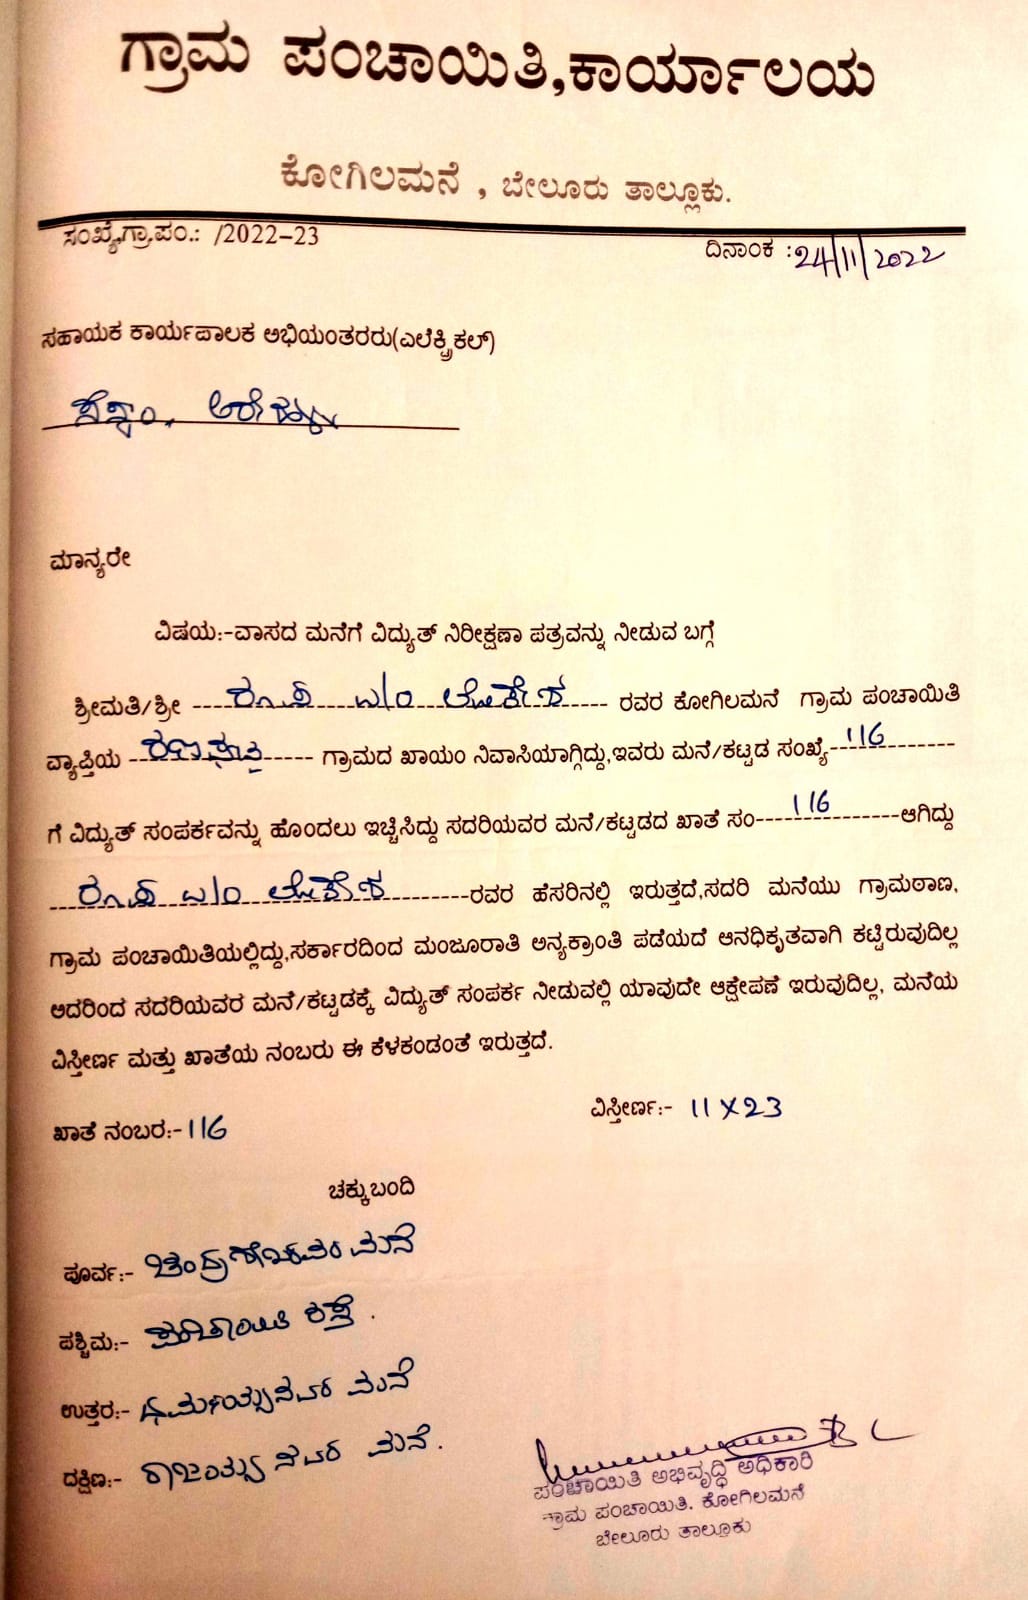 ಗ್ರಾಮ ಪಂಚಾಯಿತಿ,ಕಾರ್ಯಾಲಯ
ಕೋಗಿಲಮನೆ , ಬೇಲೂರು ತಾಲ್ಲೂಕು.
ಸಂಖ್ಯೆ,ಗ್ರಾ.ಪಂ.: /2022-23
ದಿನಾಂಕ :24/11/2022
ಸಹಾಯಕ ಕಾರ್ಯಪಾಲಕ ಅಭಿಯಂತರರು(ಎಲೆಕ್ಟ್ರಿಕಲ್)
ಮಾನ್ಯರೇ
ವಿಷಯ:-ವಾಸದ ಮನೆಗೆ ವಿದ್ಯುತ್ ನಿರೀಕ್ಷಣಾ ಪತ್ರವನ್ನು ನೀಡುವ ಬಗ್ಗೆ
ಶ್ರೀಮತಿ/ಶ್ರೀ ಲೋಕೇಶ ರವರ ಕೋಗಿಲಮನೆ ಗ್ರಾಮ ಪಂಚಾಯಿತಿ
ವ್ಯಾಪ್ತಿಯ ಗ್ರಾಮದ ಖಾಯಂ ನಿವಾಸಿಯಾಗ್ಗಿದ್ದು,ಇವರು ಮನೆ/ಕಟ್ಟಡ ಸಂಖ್ಯೆ-116
ಗೆ ವಿದ್ಯುತ್ ಸಂಪರ್ಕವನ್ನು ಹೊಂದಲು ಇಚ್ಚಿಸಿದ್ದು ಸದರಿಯವರ ಮನೆ/ಕಟ್ಟಡದ ಖಾತೆ ಸಂ-116-ಆಗಿದ್ದು
ಲೋಕೇಶ -ರವರ ಹೆಸರಿನಲ್ಲಿ ಇರುತ್ತದೆ,ಸದರಿ ಮನೆಯು ಗ್ರಾಮಠಾಣ,
ಗ್ರಾಮ ಪಂಚಾಯಿತಿಯಲ್ಲಿದ್ದು,ಸರ್ಕಾರದಿಂದ ಮಂಜೂರಾತಿ ಅನ್ಯಕ್ರಾಂತಿ ಪಡೆಯದೆ ಆನಧಿಕೃತವಾಗಿ ಕಟ್ಟಿರುವುದಿಲ್ಲ
ಅದರಿಂದ ಸದರಿಯವರ ಮನೆ/ಕಟ್ಟಡಕ್ಕೆ ವಿದ್ಯುತ್ ಸಂಪರ್ಕ ನೀಡುವಲ್ಲಿ ಯಾವುದೇ ಆಕ್ಷೇಪಣೆ ಇರುವುದಿಲ್ಲ, ಮನೆಯ
ವಿಸ್ತೀರ್ಣ ಮತ್ತು ಖಾತೆಯ ನಂಬರು ಈ ಕೆಳಕಂಡಂತೆ ಇರುತ್ತದೆ.
ಖಾತೆ ನಂಬರ:-116
ವಿಸ್ತೀರ್ಣ:- 11X23
ಚಕ್ಕುಬಂದಿ
ಪೂರ್ವ:- ಚಂದ್ರಶೇಖರವರ ಮನೆ
ಪಶ್ಚಿಮ:- ಪಂಚಾಯಿತಿ ರಸ್ತೆ.
ಉತ್ತರ:- ಧರ್ಮಯ್ಯನವರ್ ಮನೆ
ದಕ್ಷಿಣ:- ರಾಜಯ್ಯನವರ ಮನೆ.
ಪಂಚಾಯಿತಿ ಅಭಿವೃದ್ಧಿ ಅಧಿಕಾರಿ
ಗ್ರಾಮ ಪಂಚಾಯಿತಿ. ಕೋಗಿಲಮನೆ
ಬೇಲೂರು ತಾಲ್ಲೂಕು